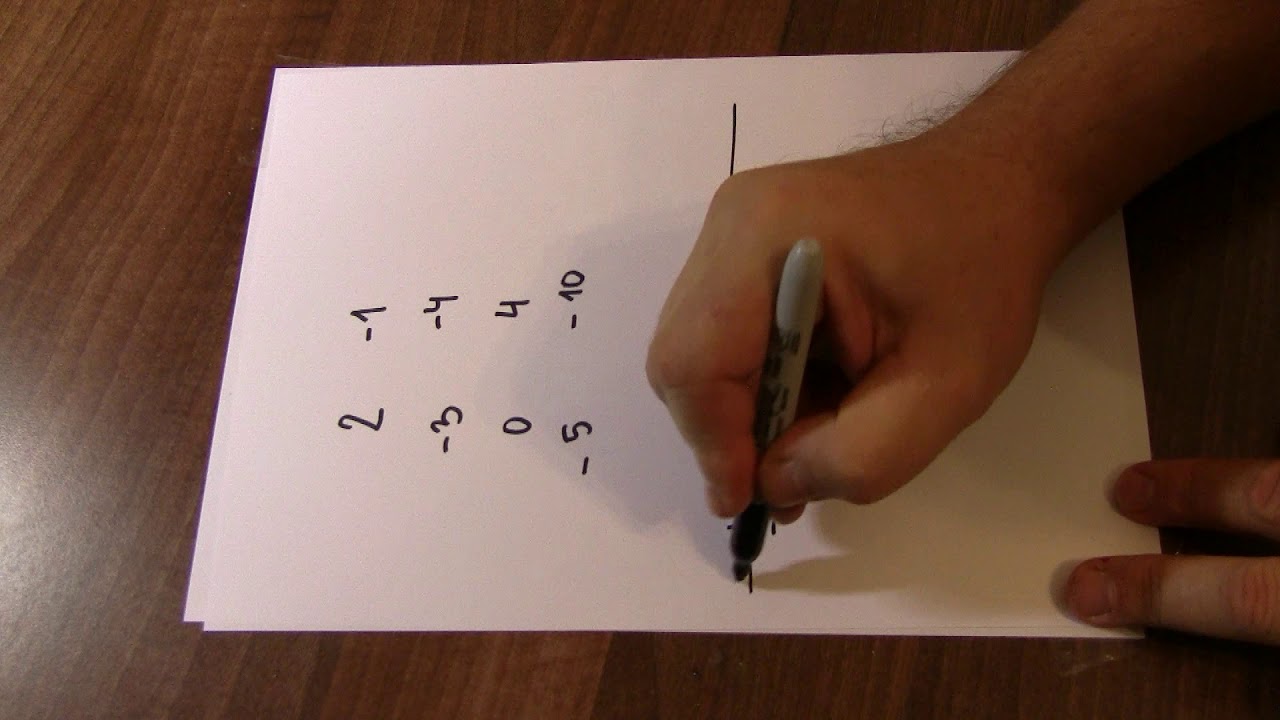 2 -1
-3 -4
0 4
-5 -10